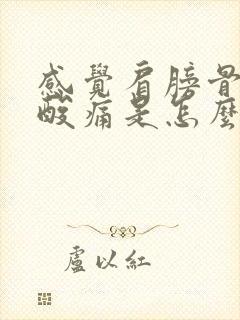 感覺肩膀骨
酸痛是怎麼
盧以紅